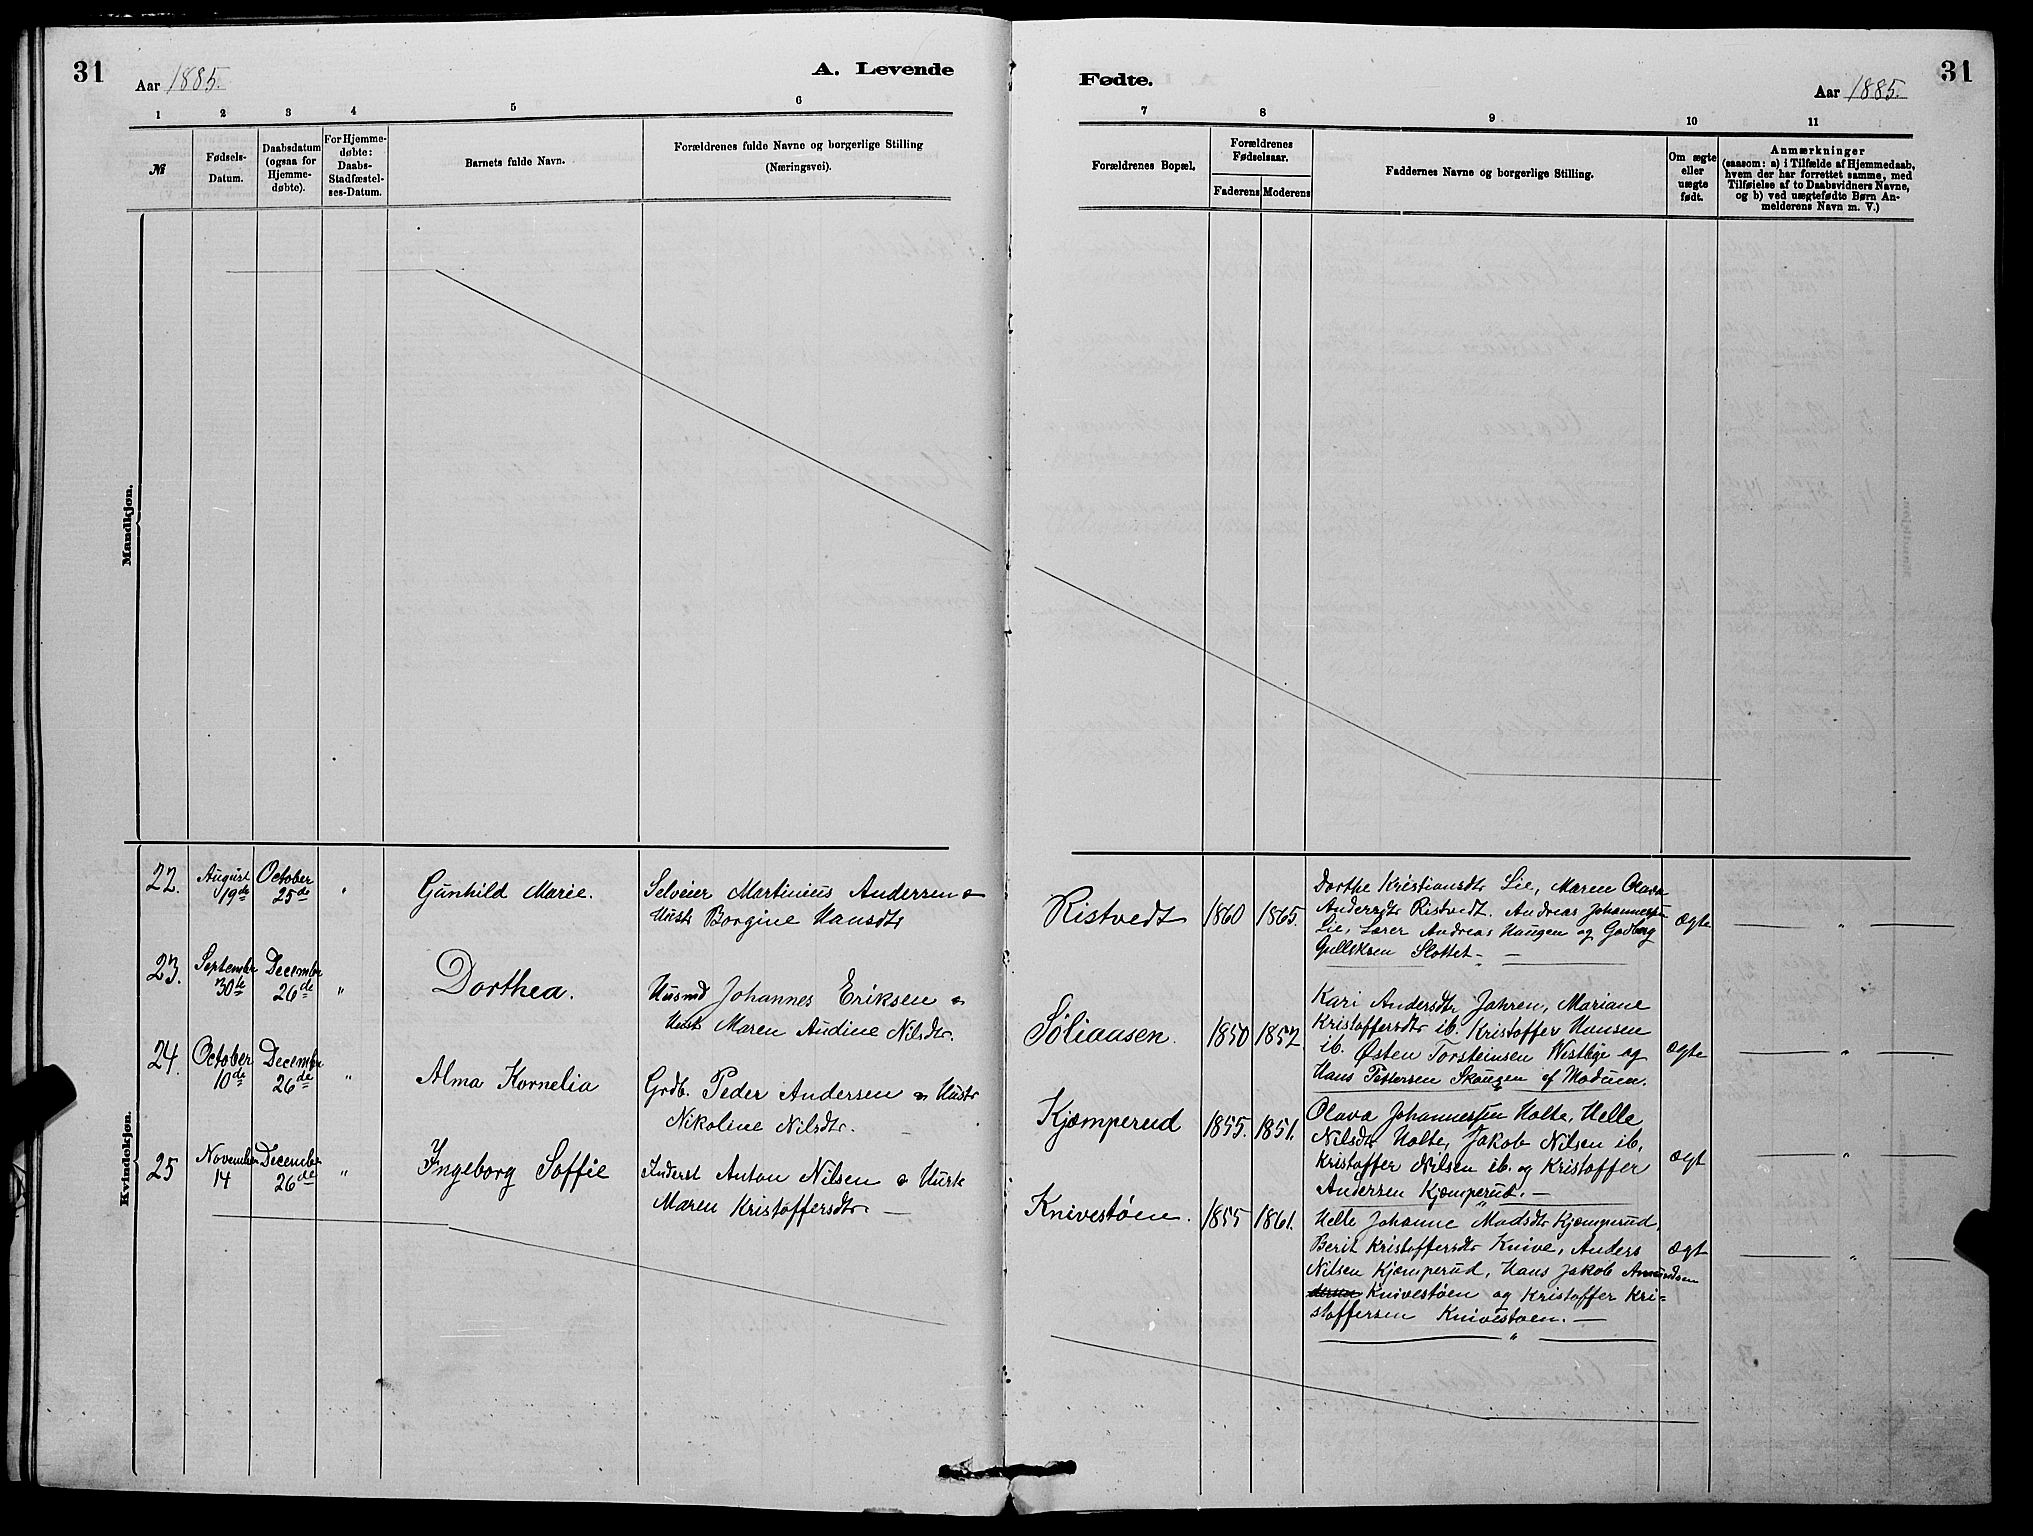 31
Aar 1885.
A. Levende
Fødte.
Aar 1885.
31
1 2 3 4 5 6
7 8 9 10 11
№
Fødsels-
Datum.
Daabsdatum
(ogsaa for
Hjemme-
døbte).
For Hjemme-
døbte:
Daabs-
Stadfæstel-
ses-Datum.
Barnets fulde Navn.
Forældrenes fulde Navne og borgerlige Stilling
(Næringsvei).
Forældrenes Bopæl.
Forældrenes
Fødselsaar.
Faderens Moderens
Faddernes Navne og borgerlige Stilling.
Om ægte
eller
uægte
født.
Anmærkninger
(saasom: a) i Tilfælde af Hjemmedaab,
hvem der har forrettet samme, med
Tilføielse af to Daabsvidners Navne,
og b) ved uægtefødte Børn An-
melderens Navn m. V.)
Mandkjøn.
Kvindekjøn.
22.
August
19de
October
25de
"
Gunhild Marie.
Selveier Martinius Andersen &
Hustr Borgine Hansdtr
Ristvedt
1860 1865.
Dorthe Kristiansdtr Lie, Maren Olava
Andersdtr Ristvedt. Andreas Johannessen
Lie, Lærer Andreas Haugen og Gudbrg
Gulleksen Slottet. —
Ægte
— " —
23.
September
30te
December
26de
"
Dorthea.
Husmd Johannes Eriksen &
Hust Maren Audine Nilsdtr.
Søliaasen.
1850 1852
Kari Andersdtr Jahren, Mariane
Kristoffersdtr ib. Kristoffer Hansen
ib. Østen Torsteinsen Vestlige og
Hans Pettersen Skougen af Modum.
Ægte
— " —
24.
October
10de
December
26de
"
Alma Kornelia
Grdb. Peder Andersen & Hustr
Nikoline Nilsdtr. —
Kjæmperud
1855. 1851.
Olava Johannessen Holte, Helle
Nilsdtr Holte, Jakob Nilsen ib.
Kristoffer Nilsen ib. og Kristoffer
Andersen Kjæmperud. —
Ægt
— " —
25
November
14
December
26de
"
Ingeborg Soffie
Inderst Anton Nilsen & Hustr
Maren Kristoffersdtr. —
Knivestøen.
1855 1861.
Helle Johanne Madsdtr Kjæmperud,
Berit Kristoffersdtr Knive, Anders
Nilsen Kjæmperud, Hans Jakob Amundsen
Knivestøen og Kristoffer Kri=
stoffersen Knivestøen. —
Ægt
— " —